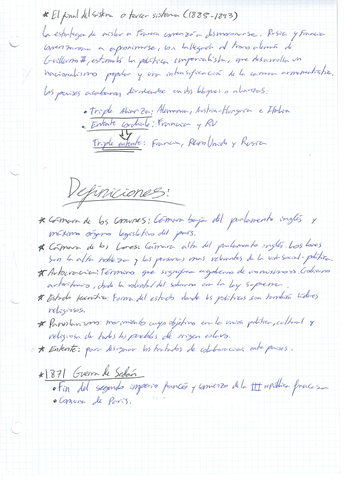 * El final del sistema o tercer sistema (1885-1893)
La estrategia de aislar a Francia comenzó a desmoronarse. Rusia y Francia
comenzaron a aproximarse, con la llegada al trono alemán de
Guillermo II, estimuló la política imperialista, que desarrolla un
nacionalismo popular y una intensificación de la carrera armamentística.
Los países acabaron dividiéndose en dos bloques o alianzas:
• Triple Alianza: Alemania, Austria-Hungría e Italia
• Entente cordiale: Francia y RU
Triple entente: Francia, Reino Unido y Rusia
Definiciones:
* Cámara de los comunes: Cámara baja del parlamento inglés y
máximo órgano legislativo del país.
* Cámara de los Lores: Cámara alta del parlamento inglés. Los lores
son la alta nobleza y las personas más relevantes de la vida social-política.
* Autocracia: Término que significa gobierno de uno mismo. Gobierno
autoritario, donde la voluntad del soberano era la ley suprema.
* Estado teocrático: Forma del estado donde los políticos son también líderes
religiosos.
* Paneslavismo: movimiento cuyo objetivo era la unión política, cultural y
religiosa de todos los pueblos de origen eslavo.
* Entente: para designar los tratados de colaboración entre países.
* 1871 Guerra de Sedán
• Fin del segundo imperio francés y comienzo de la III república francesa
• Comuna de París.